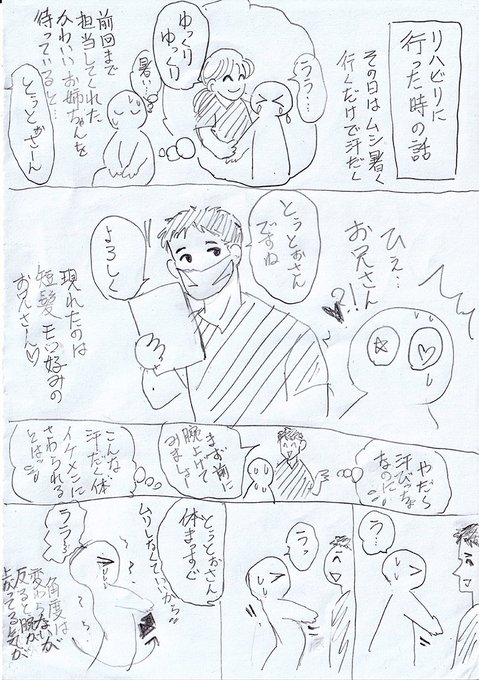 リハビリに
行った時の話
その日はムシ暑く
行くだけで汗だく
ううう…
ゆっくり
ゆっくり
暑い…
前回まで
担当してくれた
かわいいお姉ちゃんを
待っていると…
とうとおさーん
ひえ…
お兄さん
?!
とうとおさん
ですね
よろしく
現れたのは
短髪モロ好みの
お兄さん♡
やだら
汗びちゃ
なのに
まず前に
腕上げて
みましょ
こんな
汗だく体
イケメンに
さわられる
とは
う…
うっ
とうとおさん
休ますぐ
ムリしなくていいから
ううう
角度は
変わらないが
反ると腕が
上がってる気が